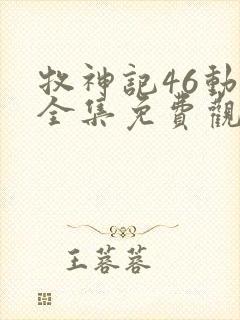 牧神記46動
全集免費觀
王蓉蓉